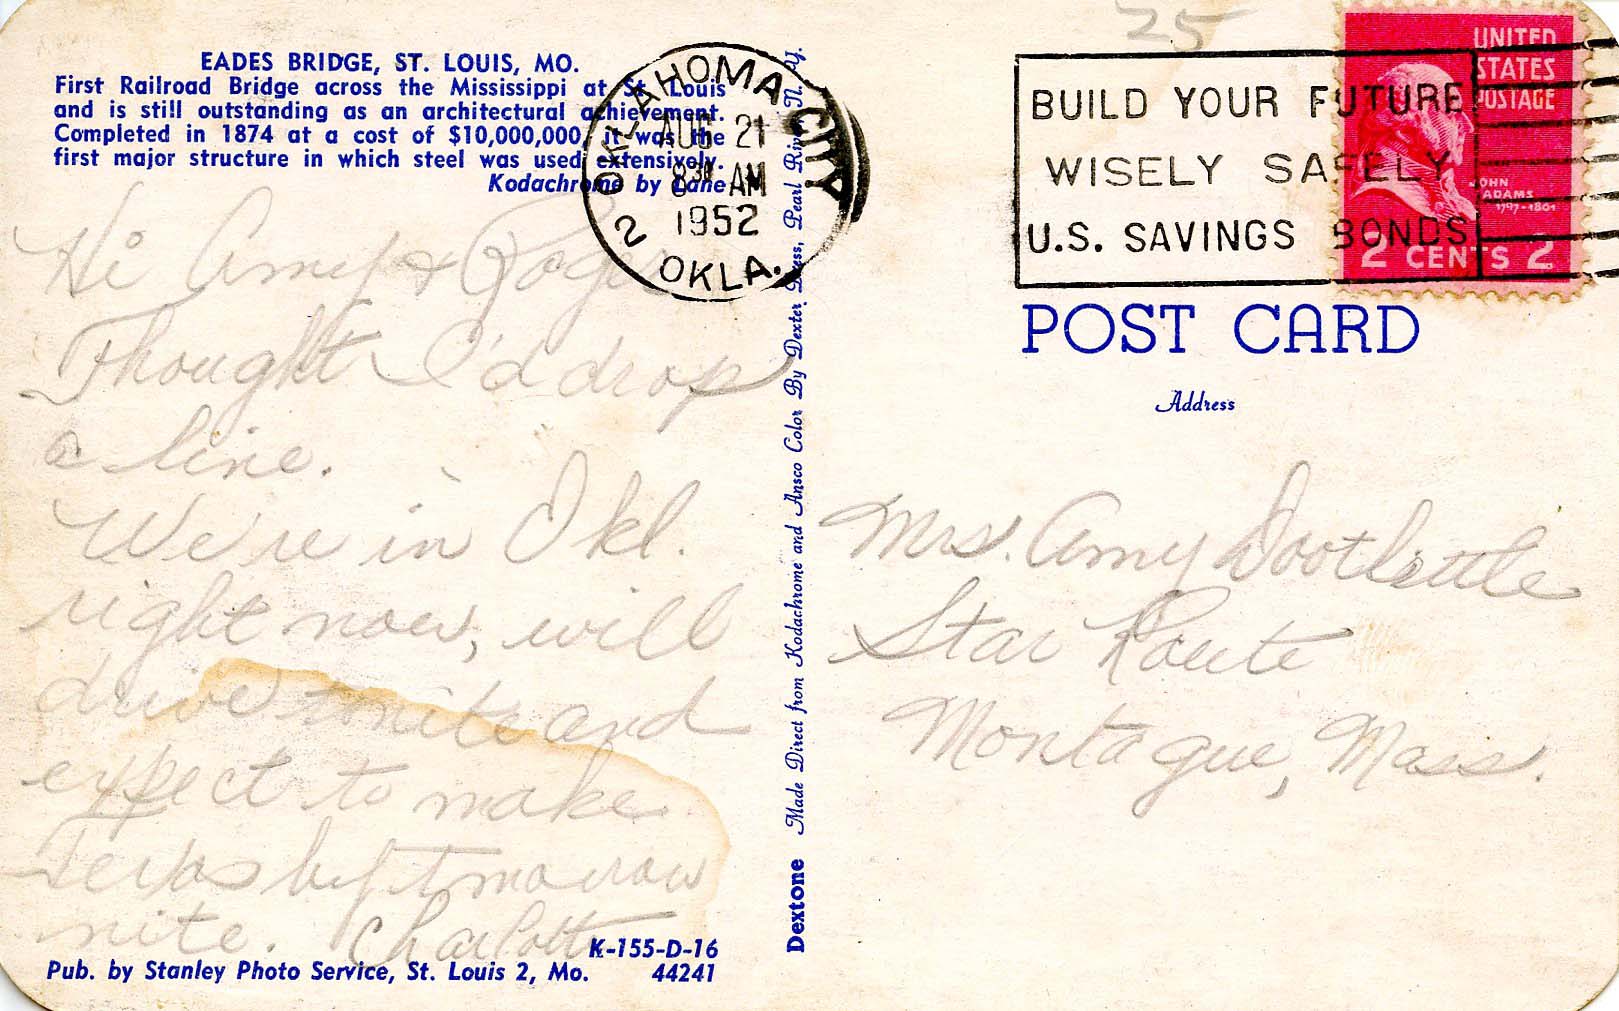 EADES BRIDGE, ST. LOUIS, MO.
First Railroad Bridge across the Mississippi at St. Louis
and is still outstanding as an architectural achievement.
Completed in 1874 at a cost of $10,000,000, it was the
first major structure in which steel was used extensively.
Kodachrome by Lane
Hi Amy &
Thought I'd drop
a line.
We're in Okl.
right now, will
drive tonite and
expect to make
Texas by tmorrow
nite. Charlott
K-155-D-16
Pub. by Stanley Photo Service, St. Louis 2, Mo. 44241
Dextone Made Direct from Kodachrome and Ansco Color By Dexter Press, Pearl River, N. Y.
OKLAHOMA CITY
AUG 21
8 30 AM
1952
2 OKLA.
25
BUILD YOUR FUTURE
WISELY SAFELY
U.S. SAVINGS BONDS
UNITED
STATES
POSTAGE
JOHN
ADAMS
1797-1801
2 CENTS 2
POST CARD
Address
Mrs. Amy Dootlittle
Star Route
Montague, Mass.